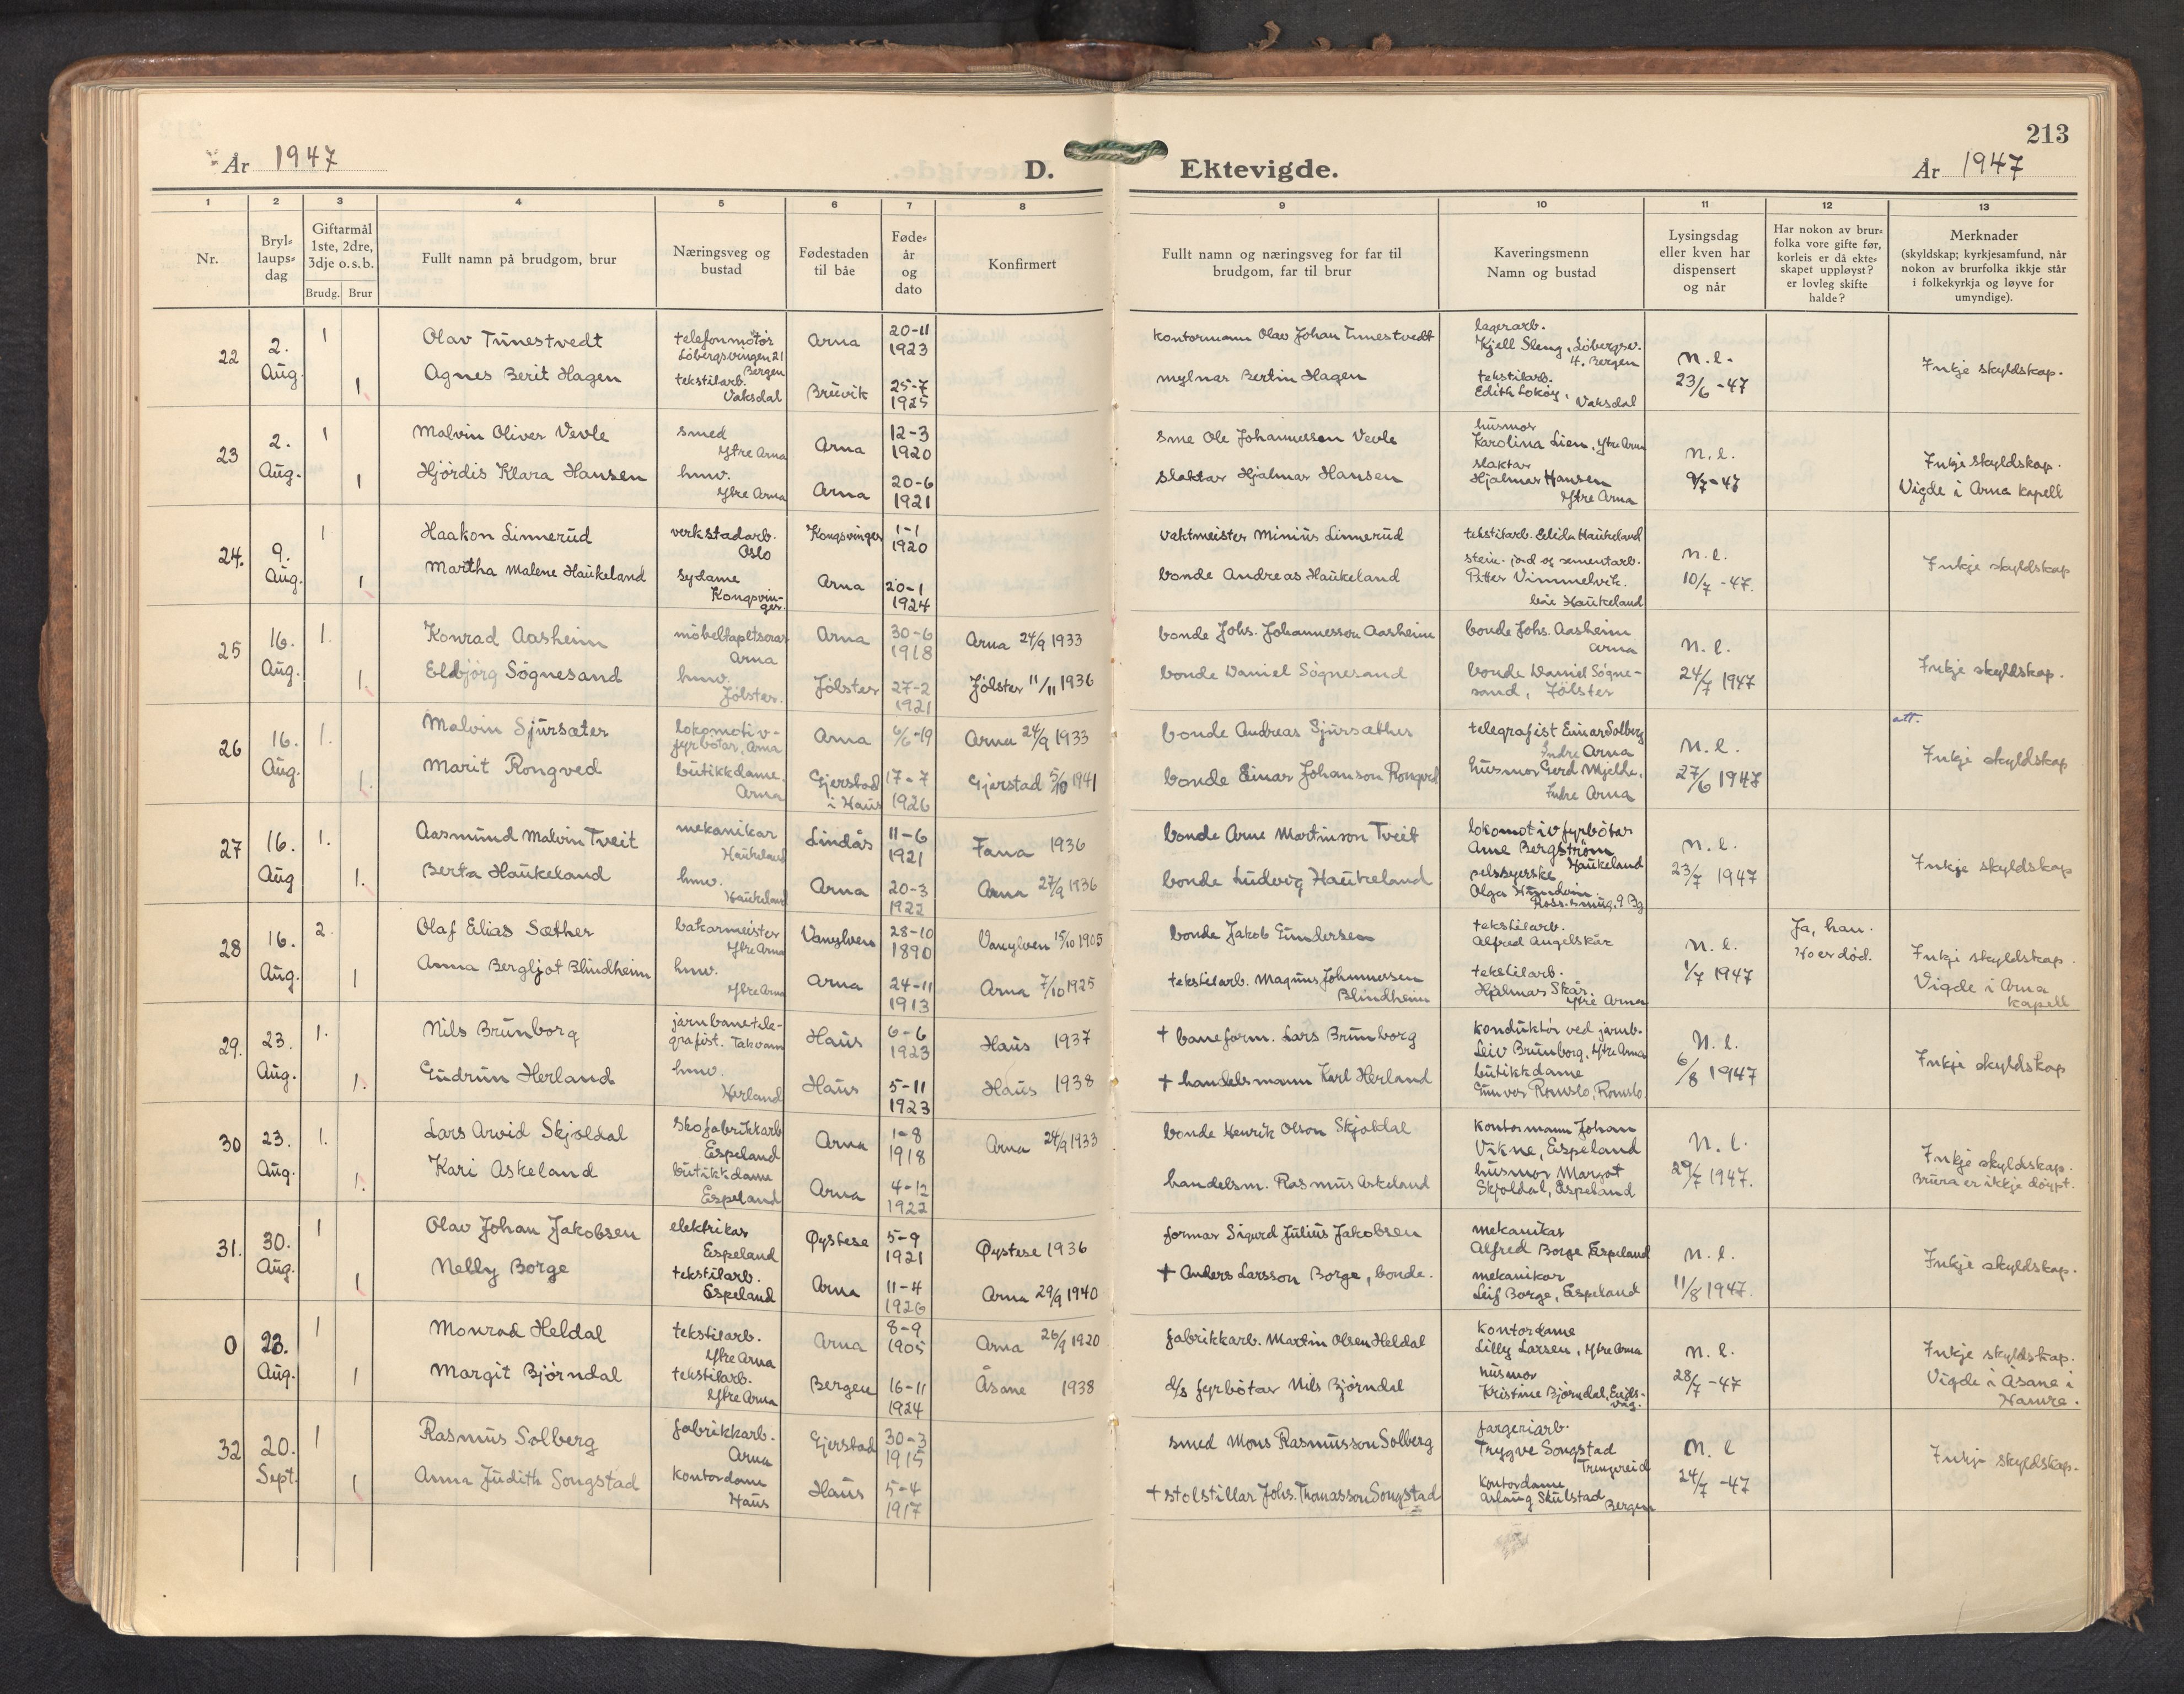 213
År 1947 D. Ektevigde. År 1947
1 2 3 4 5 6 7 8 9 10 11 12 13
Nr.
Bryl-
laups-
dag
Giftarmål
1ste, 2dre,
3dje o.s.b.
Brudg. Brur
Fullt namn på brudgom, brur
Næringsveg og
bustad
Fødestaden
til båe
Føde-
år
og
dato
Konfirmert
Fullt namn og næringsveg for far til
brudgom, far til brur
Kaveringsmenn
Namn og bustad
Lysingsdag
eller kven har
dispensert
og når
Har nokon av brur-
folka vore gifte før,
korleis er då ekte-
skapet uppløyst?
er lovleg skifte
halde?
Merknader
(skyldskap; kyrkjesamfund, når
nokon av brurfolka ikkje står
i folkekyrkja og løyve for
umyndige).
22
2.
Aug.
1
1
Olav Tunestvedt
Agnes Berit Hagen
telefonmotør
Løbergsvingen 21
Bergen
tekstilarb.
Vaksdal
Arna
Bruvik
20-11
1923
25-7
1925
kontormann Olav Johan Tunestvedt
mylnar Bertin Hagen
lagerarb.
Kjell Steng, Löbergsv.
4, Bergen
tekstilarb.
Edith Lokøy,
Vaksdal
n. l.
23/6 -47
Inkje skyldskap.
23
2.
Aug.
1
1
Malvin Oliver Vevle
Hjördis Klara Hansen
smed
Ytre Arna
hmv.
Ytre Arna
Arna
Arna
12-3
1920
20-6
1921
sme Ole Johannessen Vevle
slaktar Hjalmar Hansen
husmor
Karolina Lien, Ytre Arna
slaktar
Hjalmar Hansen
Ytre Arna
n. l.
9/7-47
Inkje skyldskap.
Vigde i Arna kapell
24.
9.
Aug.
1
1
Haakon Linnerud
Martha Malene Haukeland
verkstadarb.
Oslo
sydame
Kongsvin-
ger.
Kongsvinger
Arna
1-1
1920
20-1
1924
vaktmeister Minius Linnerud
bonde Andreas Haukeland
tekstilarb. Elida Haukeland
stein- jord og sementarb.
Petter Vimmelvik.
båe Haukeland
n. l.
10/7 -47.
Inkje skyldskap
25
16.
Aug.
1.
1.
Konrad Aasheim
Eldbjörg Sögnesand
möbeltapetserar
Arna
hmv.
Jölster.
Arna
Jölster
30-6
1918
27-2
1921
Arna 24/9 1933
Jölster 11/11 1936
bonde Johs. Johannesson Aasheim
bonde Daniel Sögnesand
bonde Johs. Aasheim
Arna
bonde Daniel Sögne-
sand, Jölster
n. l.
24/7 1947
Inkje skyldskap.
26
16.
Aug.
1.
1.
Malvin Sjursæter
Marit Rongved
lokomotiv-
fyrbötar, Arna
butikkdame.
Arna
Arna
Gjerstad
i Haus
6/6-19
17-7
1926
Arna 24/9 1933
Gjerstad 5/10 1941
bonde Andreas Sjursæther
bonde Einar Johanson Rongved
telegrafist Einar Solberg
Indre Arna
husmor Gerd Mjelde,
Indre Arna
n. l.
27/6 1947
att.
Inkje skyldskap
27
16.
Aug
1.
1.
Aasmund Malvin Tveit
Berta Haukeland
mekanikar
Haukeland
hmv.
Haukeland
Lindås
Arna
11-6
1921
20-3
1922
Fana 1936
Arna 27/9 1936
bonde Arne Martinson Tveit
bonde Ludvig Haukeland
lokomotivfyrbötar
Arne Bergström
Haukeland
pelssyerske
Olga
n. l.
23/7 1947
Inkje skyldskap
28
16.
Aug.
2.
1
Olaf Elias Sæther
Anna Bergljot Blindheim
bakarmeister
Ytre Arna
hmv.
Ytre Arna
Vanylven
Arna
28-10
1890
24-11
1913
Vanylven 15/10 1905
Arna 7/10 1925
bonde Jakob Gundersen
tekstilarb. Magnus Johannessen
Blindheim
tekstilarb.
Alfred Angelskår
tekstilarb.
Hjalmar Skår.
Ytre Arna
n. l.
1/7 1947
Ja, han.
Ho er död.
Inkje skyldskap.
Vigde i Arna
kapell
29.
23.
Aug.
1.
1.
Nils Brunborg
Gudrun Herland
jarnbanetele-
grafist. Takvam
hmv.
Herland
Haus
Haus
6-6
1923
5-11
1923
Haus 1937
Haus 1938
+ baneform. Lars Brunborg
+ handelsmann Karl Herland
konduktör ved jarnb.
Leiv Brunborg, Ytre Arna
butikkdame
Gunvor Romslo, Romslo.
n. l.
6/8 1947
Inkje skyldskap
30
23.
Aug.
1.
1.
Lars Arvid Skjoldal
Kari Askeland
skofabrikkarb
Espeland
butikkdame
Espeland
Arna
Arna
1-8
1918
4-12
1922
Arna 24/9 1933
bonde Henrik Olson Skjoldal
handelsm. Rasmus Askeland
kontormann Johan
Vikne, Espeland
husmor Margot
Skjoldal, Espeland
n. l.
29/7 1947.
Inkje skyldskap.
Brura er ikkje döypt.
31.
30.
Aug.
1
1
Olav Johan Jakobsen
Nelly Borge
elektrikar
Espeland
tekstilarb.
Espeland
Øystese
Arna
5-9
1921
11-4
1926
Øystese 1936
Arna 29/9 1940
formar Sigurd Julius Jakobsen
+ Anders Larsson Borge, bonde.
mekanikar
Alfred Borge Espeland
mekanikar
Leif Borge, Espeland
n. l.
11/8 1947.
Inkje skyldskap.
0
23.
Aug.
1
1
Monrad Heldal
Margit Bjørndal
tekstilarb.
Ytre Arna
tekstilarb.
Ytre Arna
Arna
Bergen
8-9
1905
16-11
1924
Arna 26/9 1920
Åsane 1938
fabrikkarb. Martin Olsen Heldal
d/s fyrbötar Nils Bjørndal
kontordame
Lilly Larsen, Ytre Arna
husmor
Kristine Bjørndal, Eids-
våg.
n. l.
28/7 -47
Inkje skyldskap.
Vigde i Åsane i
Hamre.
32
20.
Sept.
1
1
Rasmus Solberg
Anna Judith Songstad
fabrikkarb.
Arna
kontordame
Haus
Gjerstad
Haus
30-3
1915
5-4
1917
smed Mons Rasmusson Solberg
+ stolstillar Johs. Thomasson Songstad
fargeriarb.
Trygve Songstad
Trengereid
kontordame
Aslaug Skulstad
Bergen
n. l
24/7 -47
Inkje skyldskap.